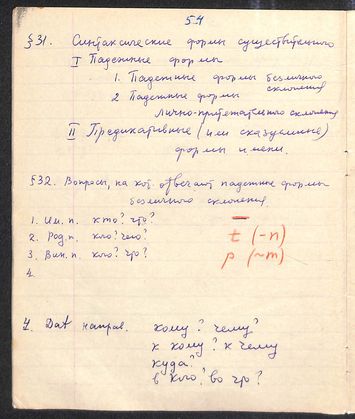 54
§31. Синтаксические формы существительного
I Падежные формы
1. Падежные формы безличного
склонения
2 Падежные формы
лично-притяжательного склонения
II Предикативные (или сказуемные)
формы имени.
§32. Вопросы, на кот. отвечают падежные формы
безличного склонения.
1. Им. п. кто? что?
2. Род. п. кого? чего?
3. Вин. п. кого? что?
4.
t (-n)
p (~m)
4. Dat направ. кому? чему?
к кому? к чему
куда?
в кого? во что?